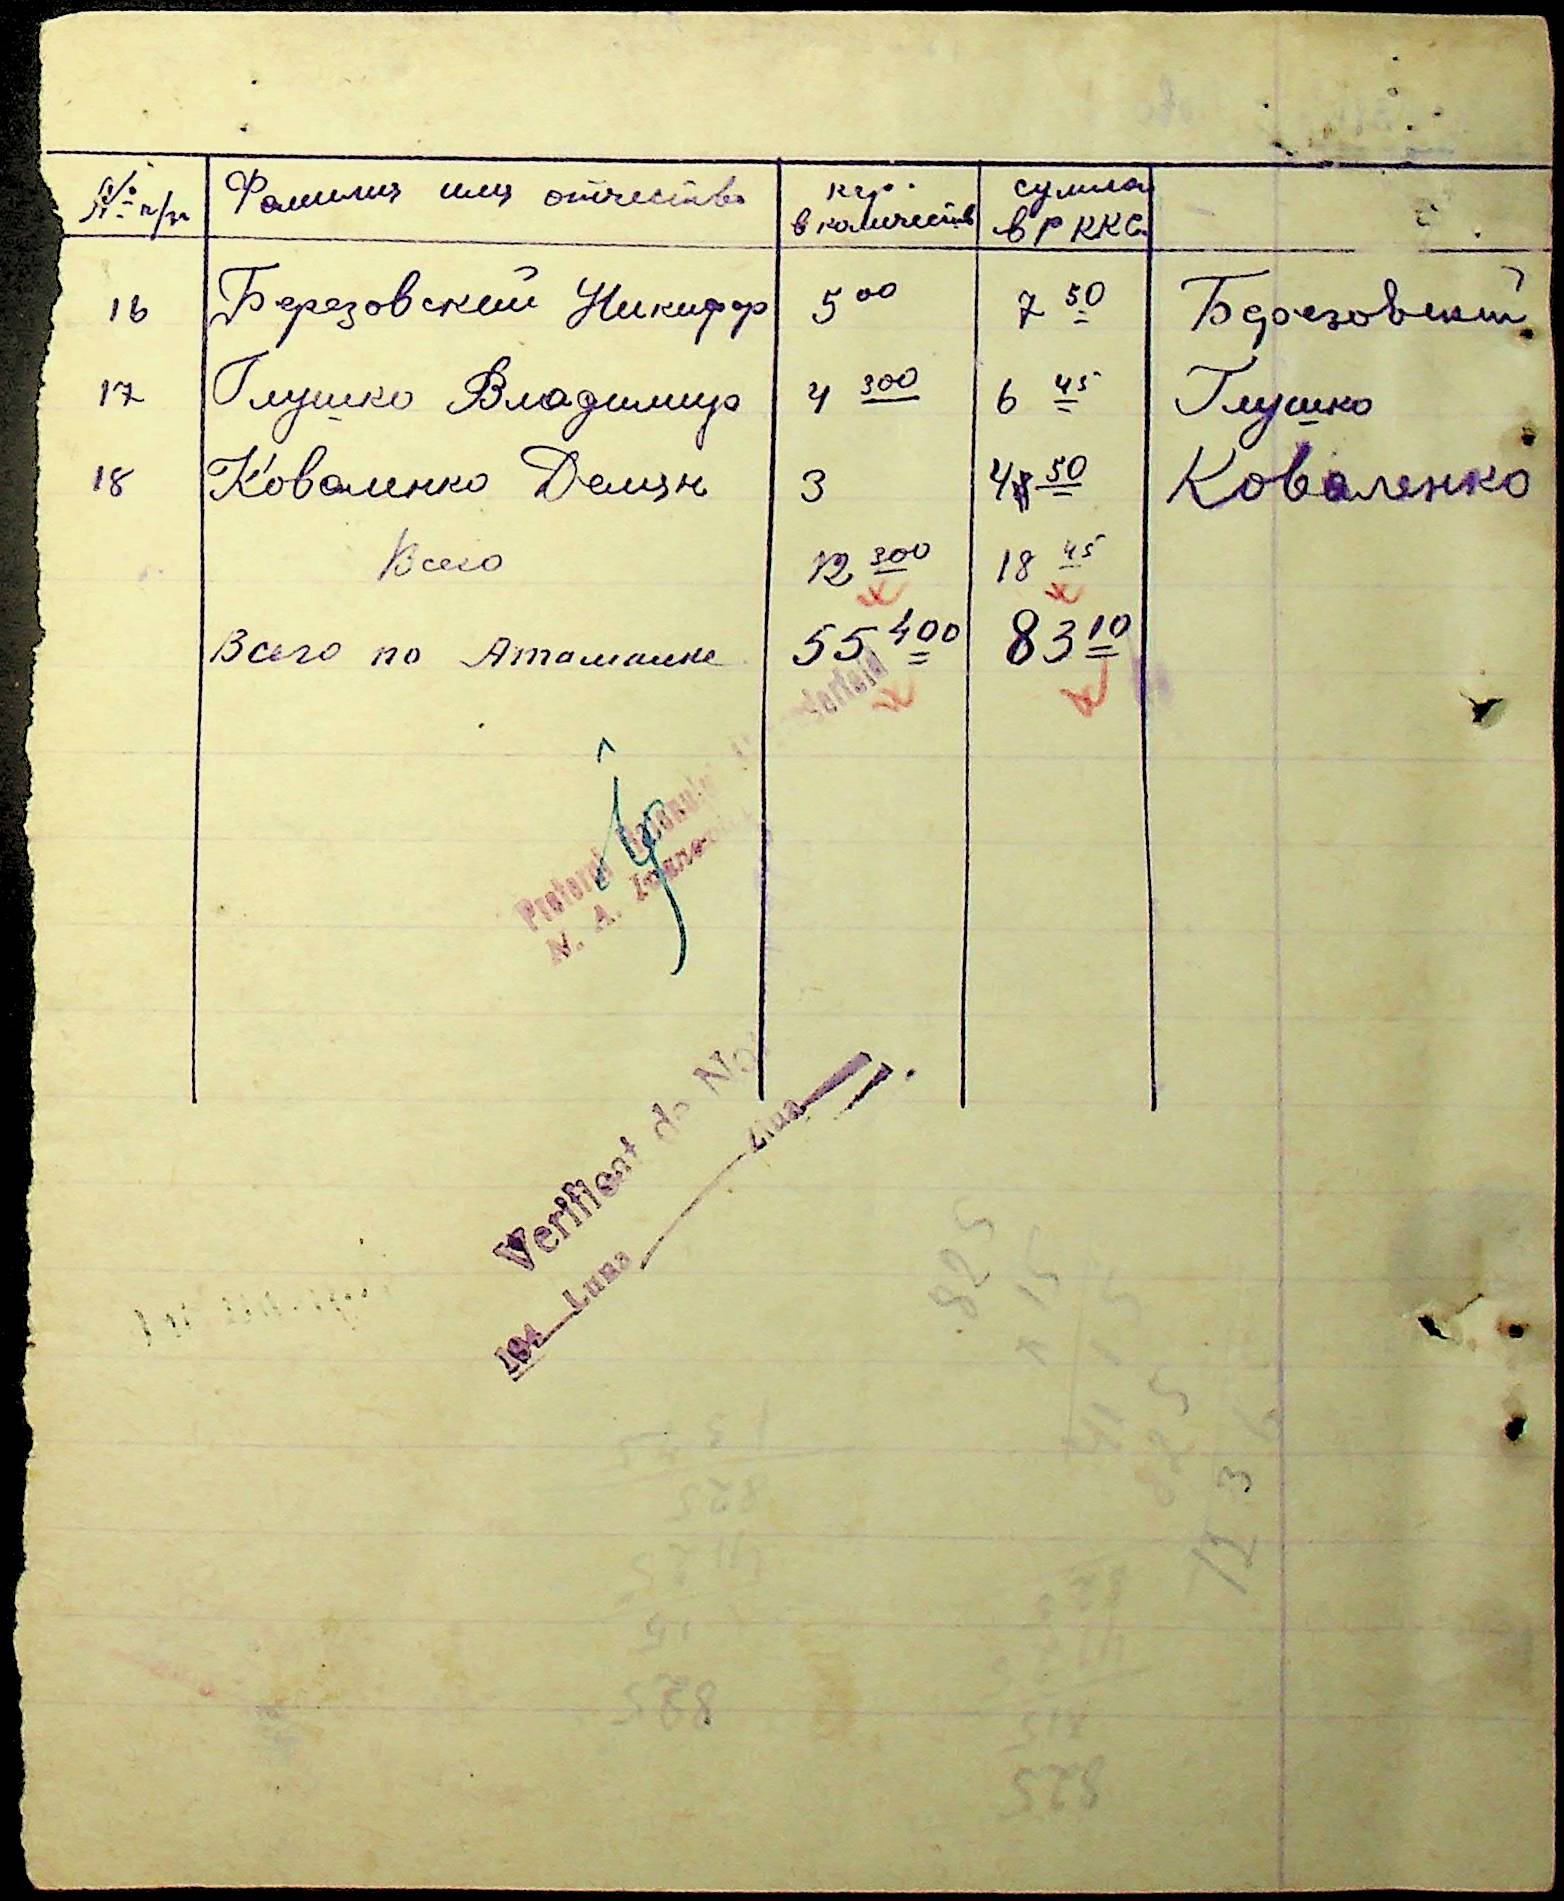 № п/п Фамилия имя отчество кгр. в количеств сумма в Р ККС
16 Березовский Никифор 5 00 7 50 Березовский
17 Глушко Владимир 4 300 6 45 Глушко
18 Коваленко Демян 3 4 50 Коваленко
Всего 12 300 18 45
Всего по Атаманке 55 400 83 10
Pretorul
N. A.
Verificat de
194 Luna Ziua